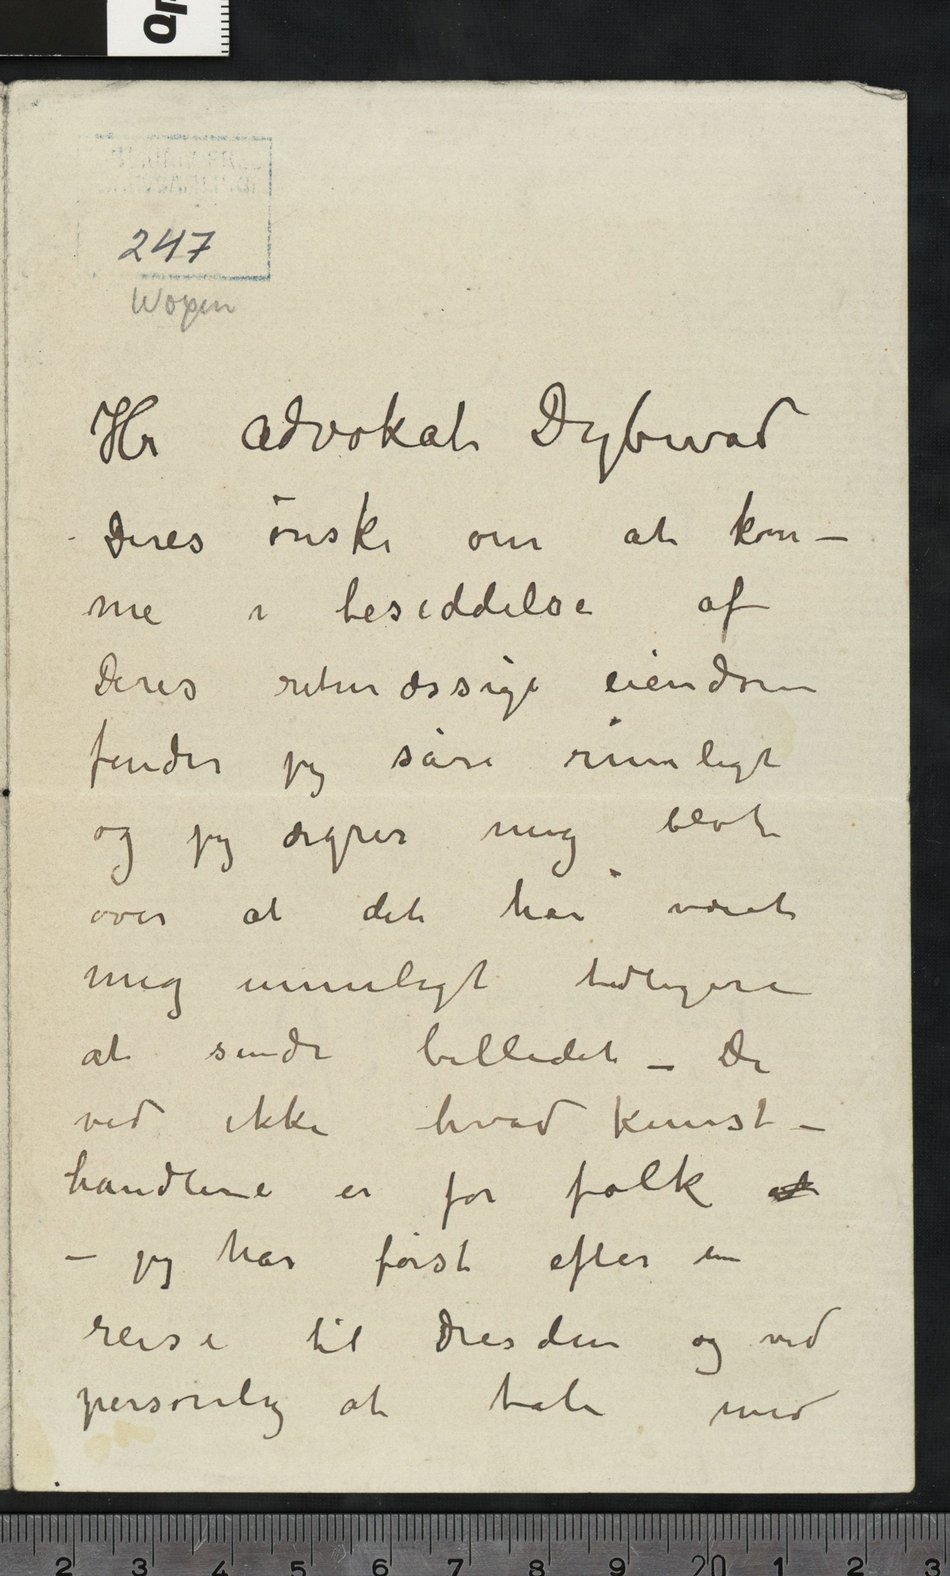 247
Wopen
Hr advokat Dybwad
Deres ønske om at kom-
me i besiddelse af
Deres retmæssige eiendom
finder jeg såre rimeligt
og jeg ærgrer mig blot
over at det har været
mig umuligt tidligere
at sende billedet – De
ved ikke hvad kunst-
handlere er for folk
– jeg har først efter en
reise til Dresden og ved
personlig at tale med
2 3 4 5 6 7 8 9 20 1 2 3